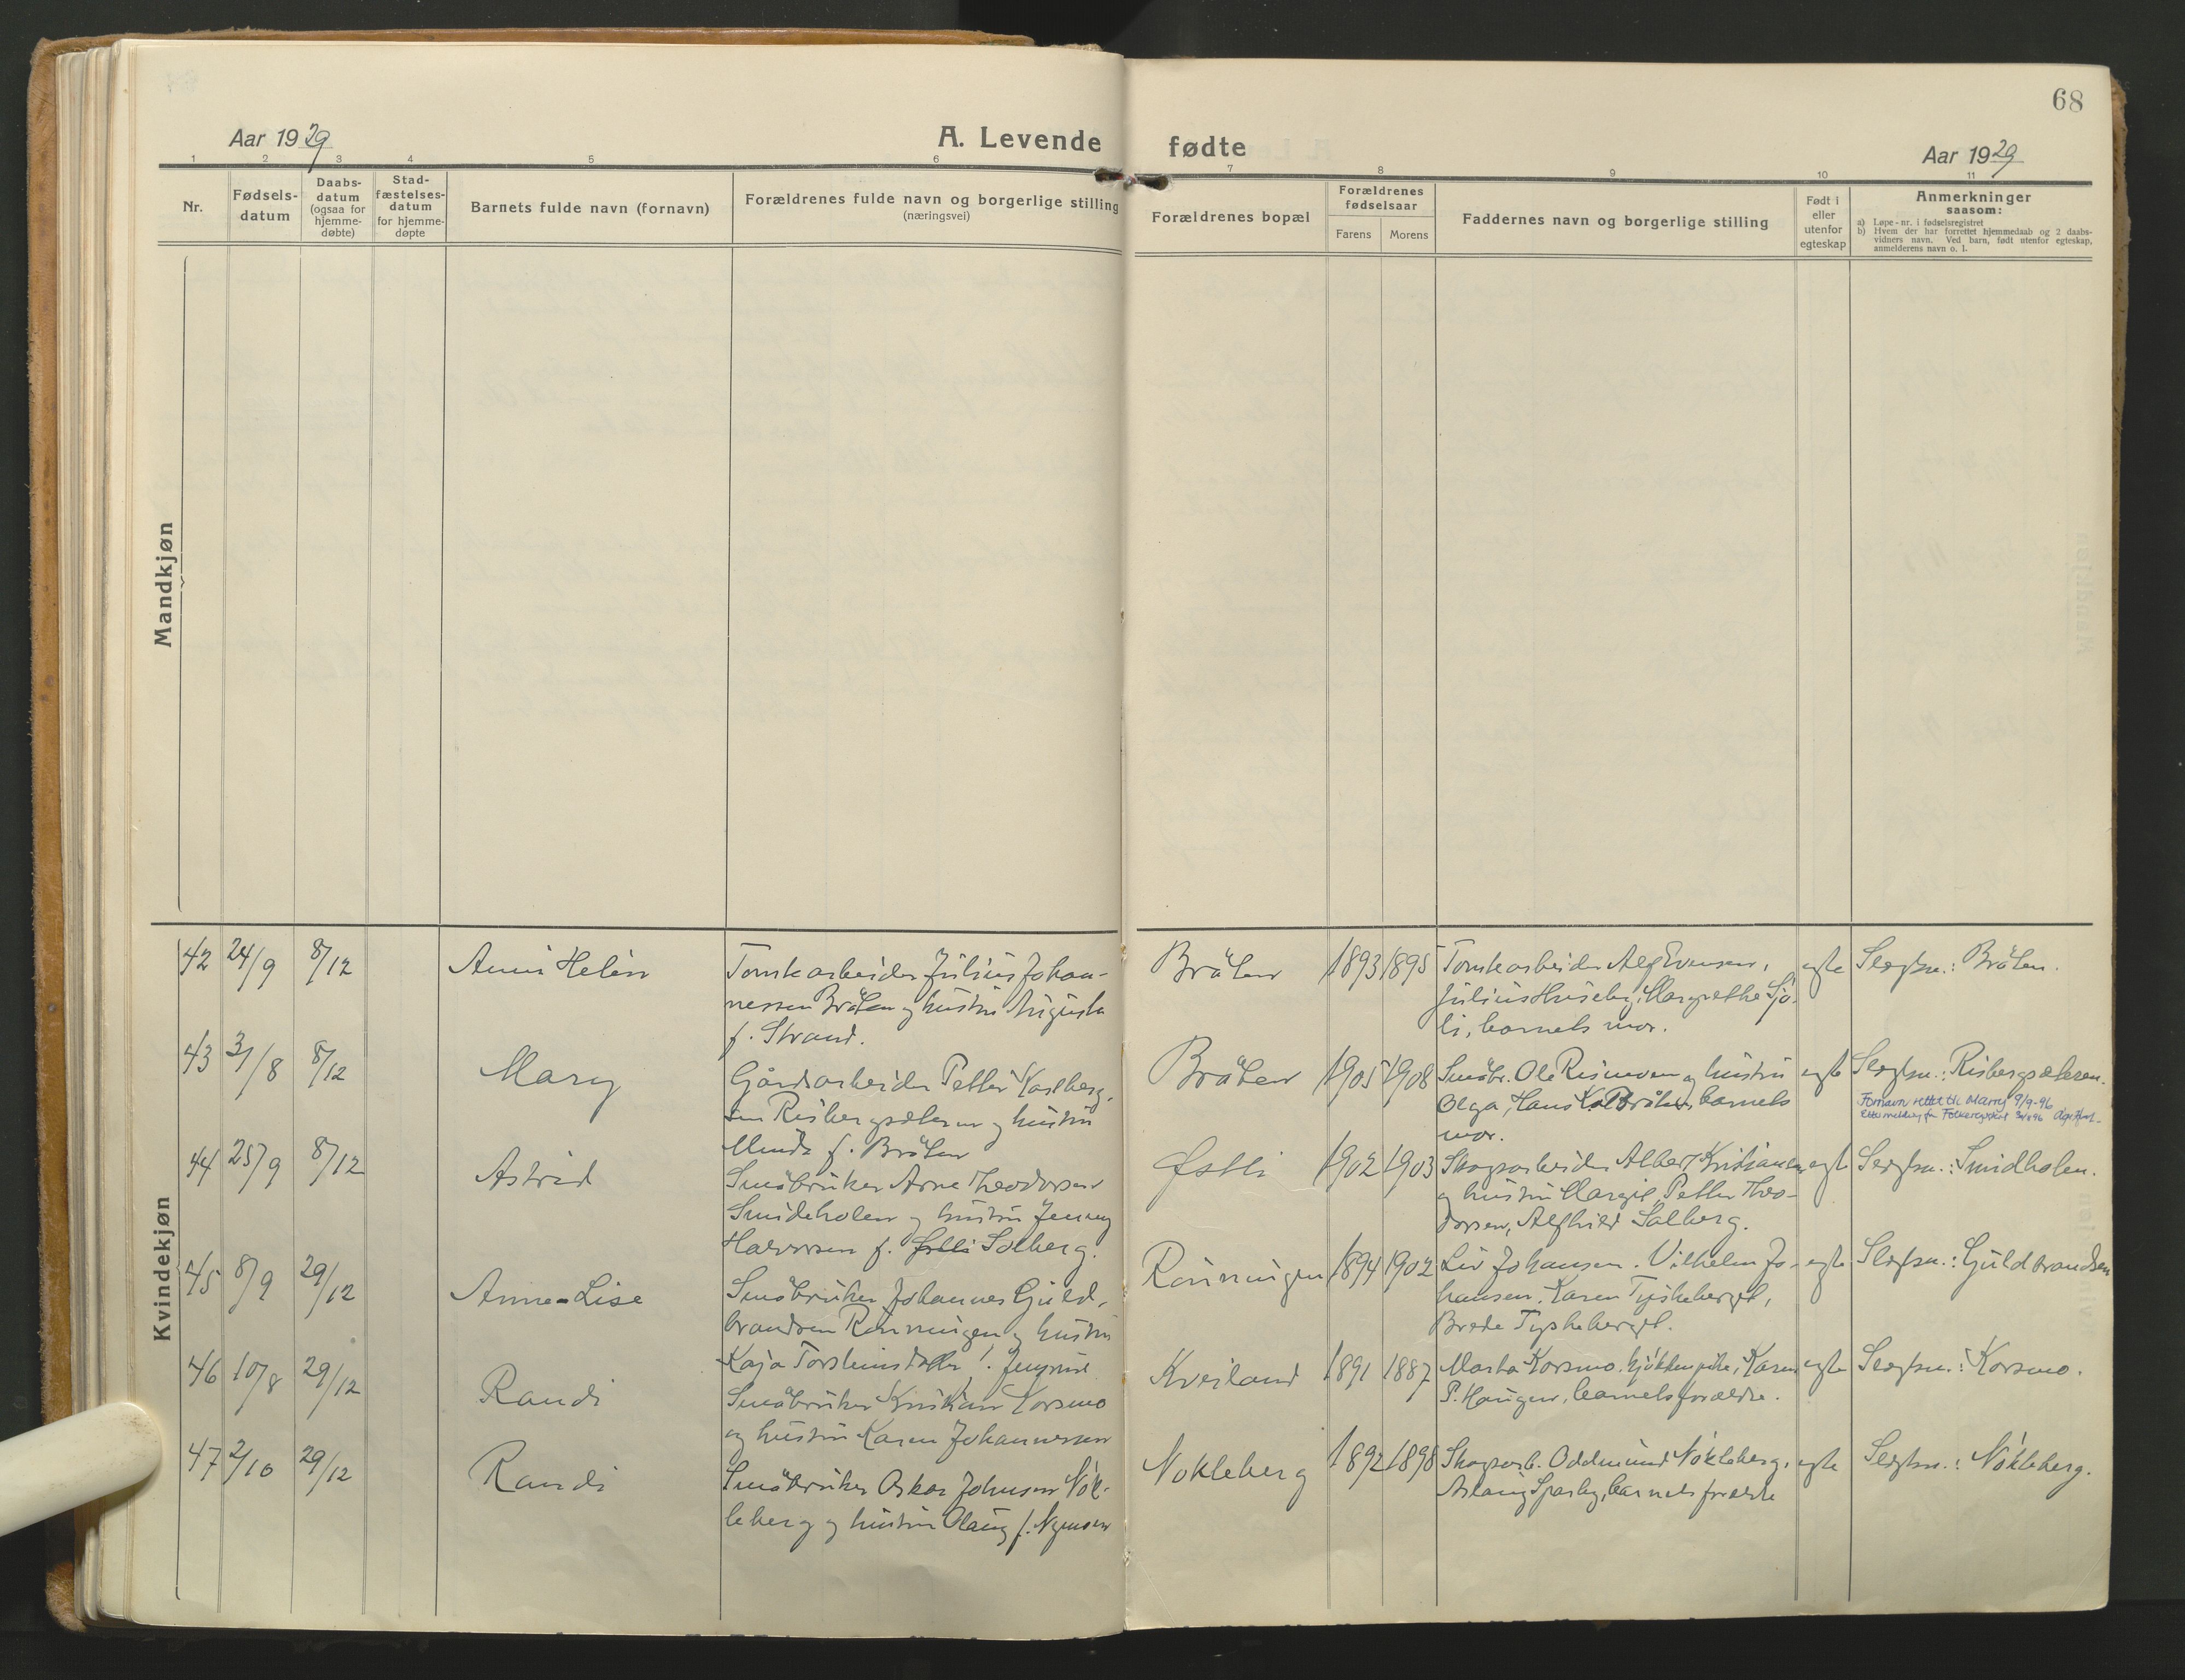 68
Aar 1929
A. Levende fødte
Aar 1929
1 2 3 4 5 6 7 8 9 10 11
Nr.
Fødsels-
datum
Daabs-
datum
(ogsaa for
hjemme-
døbte)
Stad-
fæstelses-
datum
for hjemme-
døpte
Barnets fulde navn (fornavn)
Forældrenes fulde navn og borgerlige stilling
(næringsvei)
Forældrenes bopæl
Forældrenes
fødselsaar
Farens Morens
Faddernes navn og borgerlige stilling
Født i
eller
utenfor
egteskap
Anmerkninger
saasom:
a) Løpe-nr. i fødselsregistret
b) Hvem der har forrettet hjemmedaab og 2 daabs-
vidners navn. Ved barn, født utenfor egteskap,
anmelderens navn o. l.
Mandkjøn
Kvindekjøn
42 24/9 8/12 Anni Helén
Tomtearbeider Julius Johan-
nessen Bråten og hustru Augusta
f. Strand.
Bråten 1893 1895
Tomtearbeider Alf Evensen,
Julius Huseby, Margrethe Sjø-
li, barnets mor.
egte Slegtsn.: Bråten.
43 31/8 8/12 Mary
Gårdsarbeider Petter Karlberg-
sen Risbergsæteren og hustru
Minda f. Bråten
Bråten 1905 1908
Småbr. Ole Rismoen og hustru
Olga, Hans K. Bråten, barnets
mor.
egte Slegtsn.: Risbergsæteren.
Fornavn rettet til Marry 9/9-96
Etter melding fra Folkeregisteret
44 25/9 8/12 Astrid
Småbruker Arne Theodorsen
Smideholen og hustru Jenny
Halvorsen f. Østli Solberg.
Østli 1902 1903
Skogsarbeider Albert Kristiansen
og hustru Margit, Petter Theo-
dorsen, Alfhild Solberg.
egte Slegtsn.: Smidholen.
45 8/9 29/12 Anne-Lise
Småbruker Johannes Guld-
brandsen Rönningen og hustru
Kaja Torsteinsdatter f.
Rönningen 1894 1902
Liv Johansen. Vilhelm Jo-
hansen. Karen Tyskeberget,
Brede Tyskeberget.
egte Slegtsn.: Guldbrandsen
46 10/8 29/12 Randi
Småbruker Kristian Korsmo
og hustru Karen Johannessen
Kveiland 1891 1887
Marta Korsmo. kjökkenpike, Karen
P. Haugen, barnets forældre.
egte Slegtsn.: Korsmo.
47 2/10 29/12 Randi
Småbruker Oskar Johnsen Nök-
leberg og hustru Olaug f. Nymoen
Nökleberg 1892 1898
Skogsarb. Oddmund Nökleberg,
Aslaug Sparby, barnets forældre
egte Slegtsn.: Nökleberg.